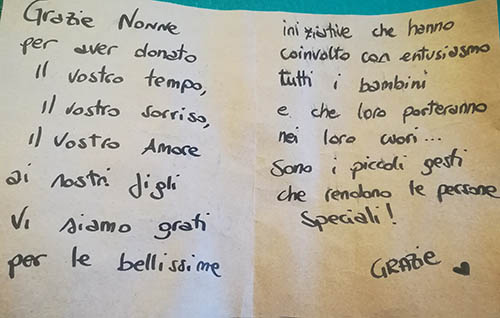 Grazie Nonne
per aver donato
Il vostro tempo,
Il vostro sorriso,
Il vostro Amore
ai nostri figli
Vi siamo grati
per le bellissime
iniziative che hanno
coinvolto con entusiasmo
tutti i bambini
e che loro porteranno
nei loro cuori...
Sono i piccoli gesti
che rendono le persone
speciali!
GRAZIE